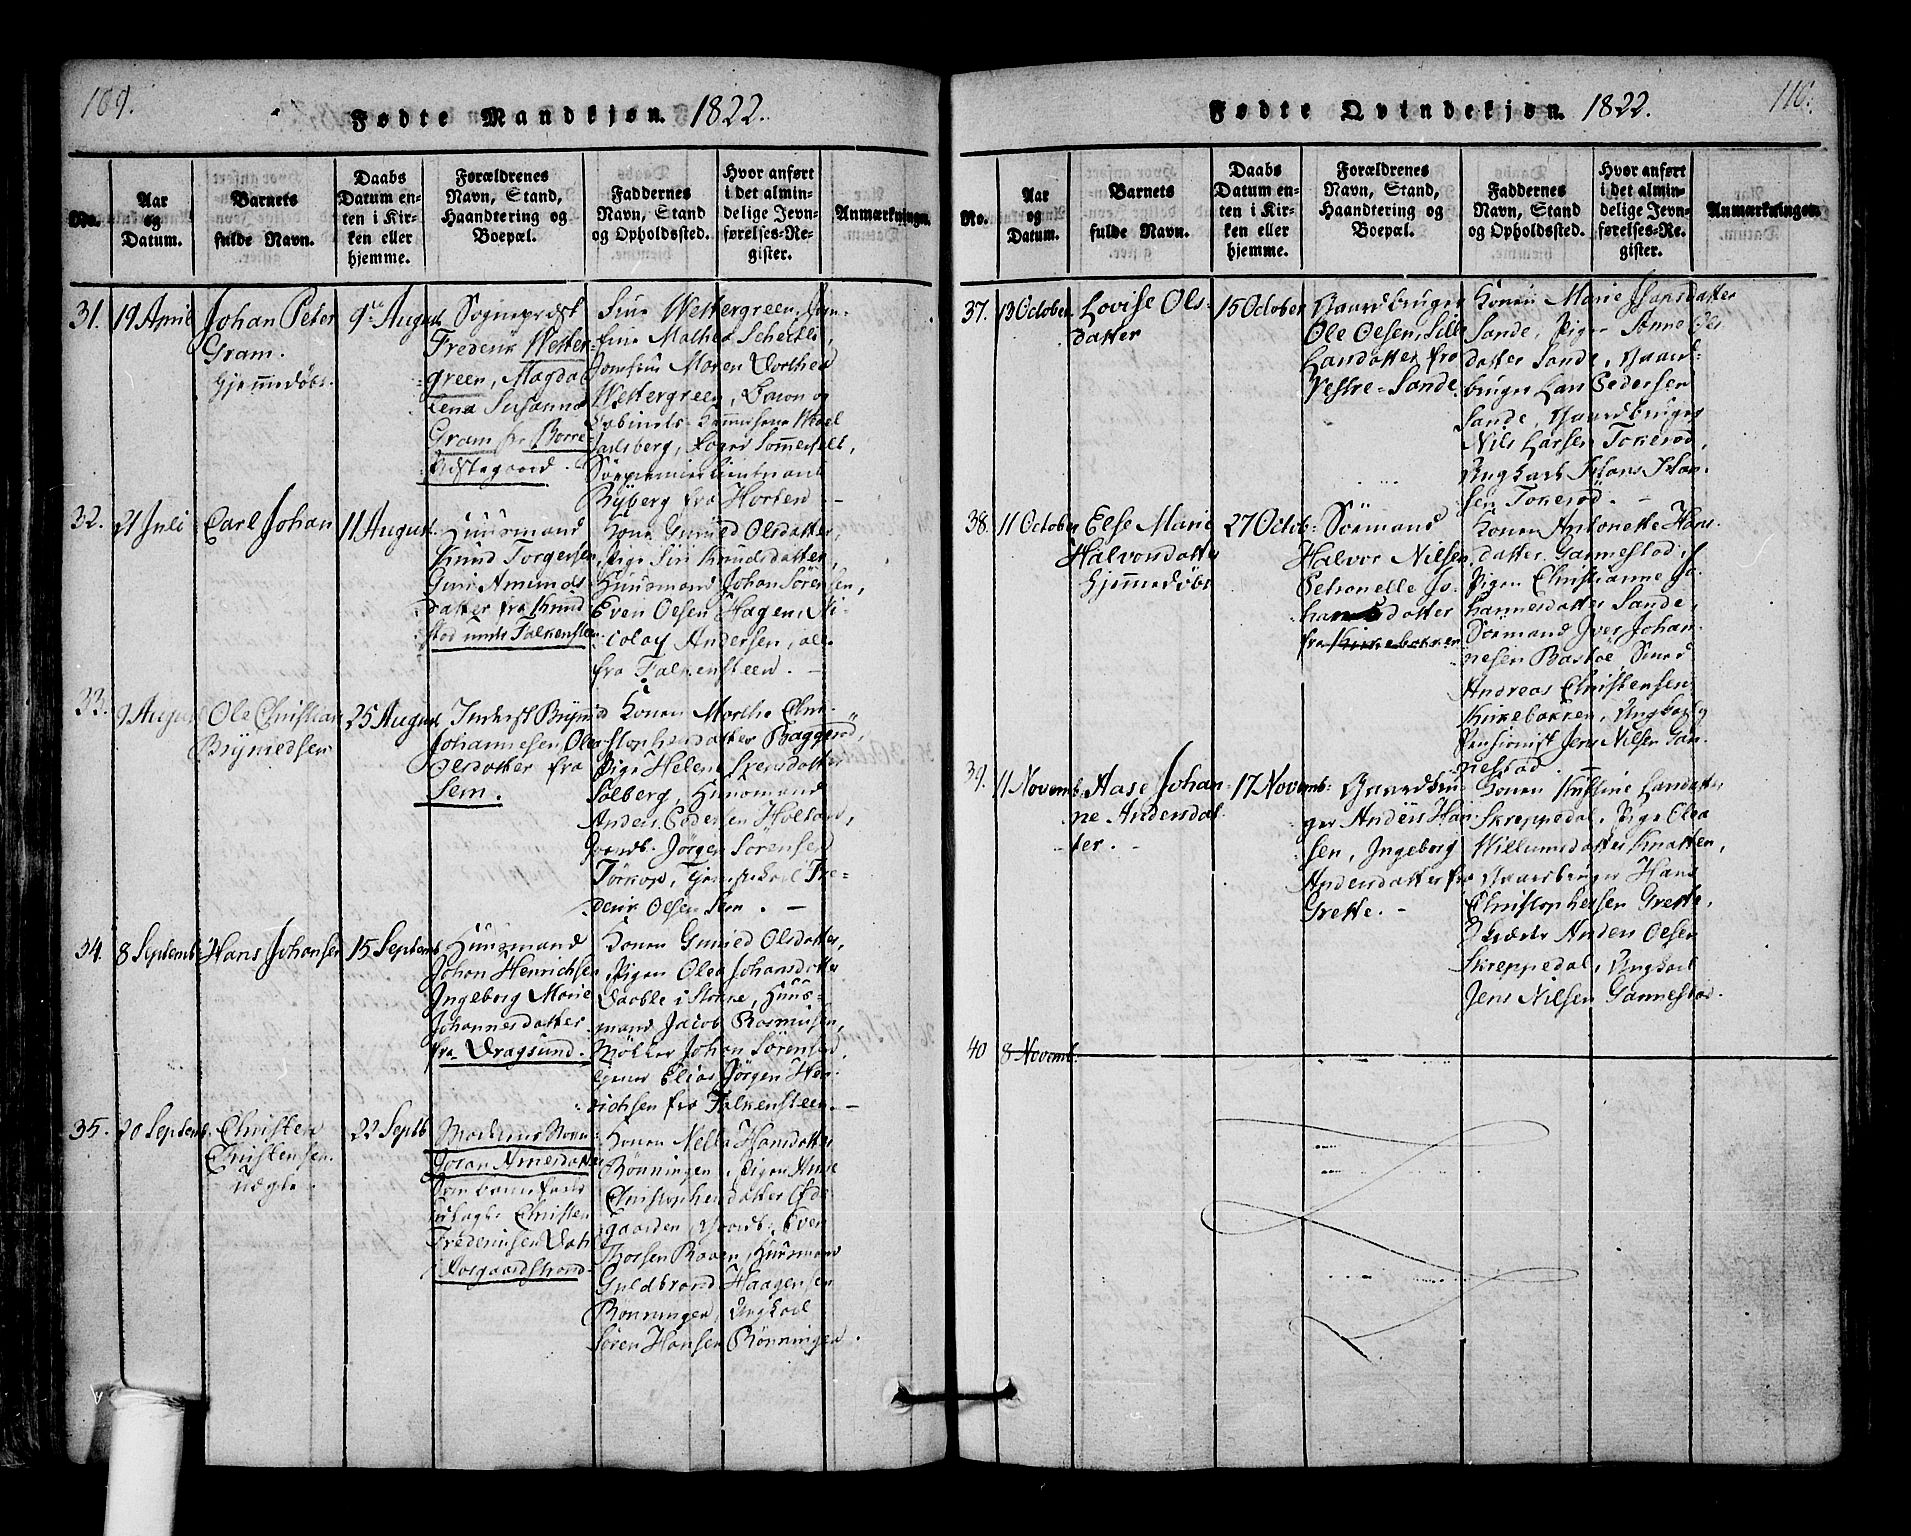 109.
Fødte Mandkjøn. 1822.
No.
Aar
og
Datum.
Barnets
fulde Navn.
Daabs
Datum en-
ten i Kir-
ken eller
hjemme.
Forældrenes
Navn, Stand,
Haandtering og
Boepæl.
Faddernes
Navn, Stand
og Opholdssted.
Hvor anført
i det almin-
delige Jevn-
førelses-Re-
gister.
Anmærkninger.
31.
19 April
Johan Peter
Gram.
Hjemmedøbt.
9de August
Sognepræst
Frederik Wetter-
green, Magda-
lena Susanna
Gram fra Borre
Præstegaard.
Frue Wettergreen, Jom-
frue Mathea Schertli,
Jomfrue Maren Dorthea
Wettergreen, Baron og
Cabinets-Kammerherre Wedel
Jarlsberg, Foged Sommerfelt,
Søepremierlieutenant
Ryberg fra Horten. -
32.
21 Juli
Carl Johan
11 August
Huusmand
Knud Torgersen
Guri Amunds-
datter fra Knud-
stad under Falkensteen.
Kone Gunild Olsdatter,
Pige Siri Knudsdatter,
Huusmand Johan Sörensen,
Even Olsen Hagen, Ni-
colay Andersen, alle
fra Falkensteen. -
33.
9 August
Ole Christian
Brynildsen
25 August
Inderst Brynild
Johannesen, Olea
Olsdatter fra
Sem.
Konen Marthe Chri-
stophersdatter Baggerød,
Pige Helene Svensdatter
Solberg, Huusmand
Anders Pedersen Holtan,
Gaardb. Jörgen Sörensen
Torkop, Tjenestekarl Fre-
derik Olsen Sem. -
34.
8 Septemb.
Hans Johansen
15 Septemb
Huusmand
Johan Henrichsen
Ingeborg Marie
Johannesdatter
fra Dragsund.
Konen Gunild Olsdatter,
Pigen Olea Johansdatter
Daable i Stokke, Huus-
mand Jacob Rasmusen,
Møller Johan Sörensen,
tjener Elias Jörgen Hen-
richsen fra Falkensteen. -
35.
20 Septemb.
Christen
Christensen.
Uægte.
22 Septb
Moderens Navn:
Joran Arnesdatter
Som barnefader
udlagt Christen
Fredericksen Dahl
Aasgaardstrand.
Konen Nella Hansdatter
Rönningen, Pigen Anne
Christophersdatter Øde-
gaarden, Gaardb. Even
Thorsen Raaen, Huusmand
Guldbrand Haagensen
Rönningen, Ungkarl
Søren Hansen Rönningen.
110.
Fødte Qvindekjøn. 1822.
No.
Aar
og
Datum.
Barnets
fulde Navn.
Daabs
Datum en-
ten i Kir-
ken eller
hjemme.
Forældrenes
Navn, Stand,
Haandtering og
Boepæl.
Faddernes
Navn, Stand
og Opholdssted.
Hvor anført
i det almin-
delige Jevn-
førelses-Re-
gister.
Anmærkninger.
37.
13 October.
Lovise Ols-
datter
15 October
Gaardbruger
Ole Olsen, Sille
Larsdatter fra
Vestre-Sande.
Konen Marie Hansdatter
Sande, Pigen Anne Ols-
datter Sande, Gaard-
bruger Lars Pedersen
Sande, Gaardbruger
Nils Larsen Tokerød,
Ungkarl Hans Han-
sen Tokerød. -
38.
11 October
Else Marie
Halvorsdatter
Hjemmedøbt
27 Octob:
Sömand
Halvor Nilsen
Petronelle Jo-
hansdatter
fra Kirkebakken
Konen Antonette Hans-
datter Gannestad,
Pigen Christianne Jo-
hannesdatter Sande,
Sömand Iver Johan-
nesen Bastøe, Smed
Andreas Christensen
Kirkebakken, Ungkarl og
Pensionist Jens Nilsen Gan-
nestad. -
39.
11 Novemb.
Aase Johan-
ne Andersdat-
ter. -
17 Novemb:
Gaardbru-
ger Anders Han-
sen, Ingeborg
Andersdatter fra
Grette. -
Konen Kirstine Larsdatter
Skreppedal, Pige Olea
Willumsdatter Knatten,
Gaardbruger Hans
Christophersen Grette,
Anders Olsen
Skreppedal, Ungkarl
Jens Nilsen Gannestad.
40
8 Novemb.